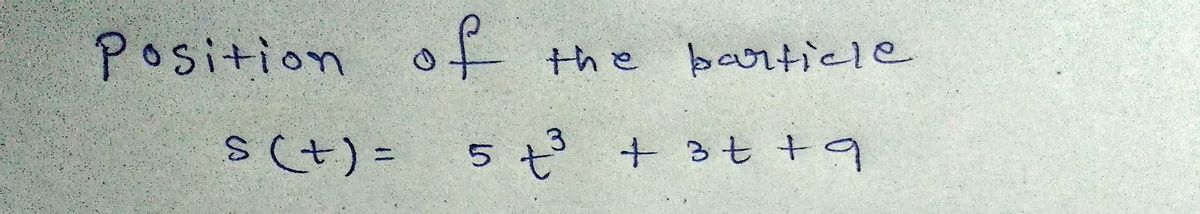 Position of the particle
s(t) = 5t³ + 3t + 9